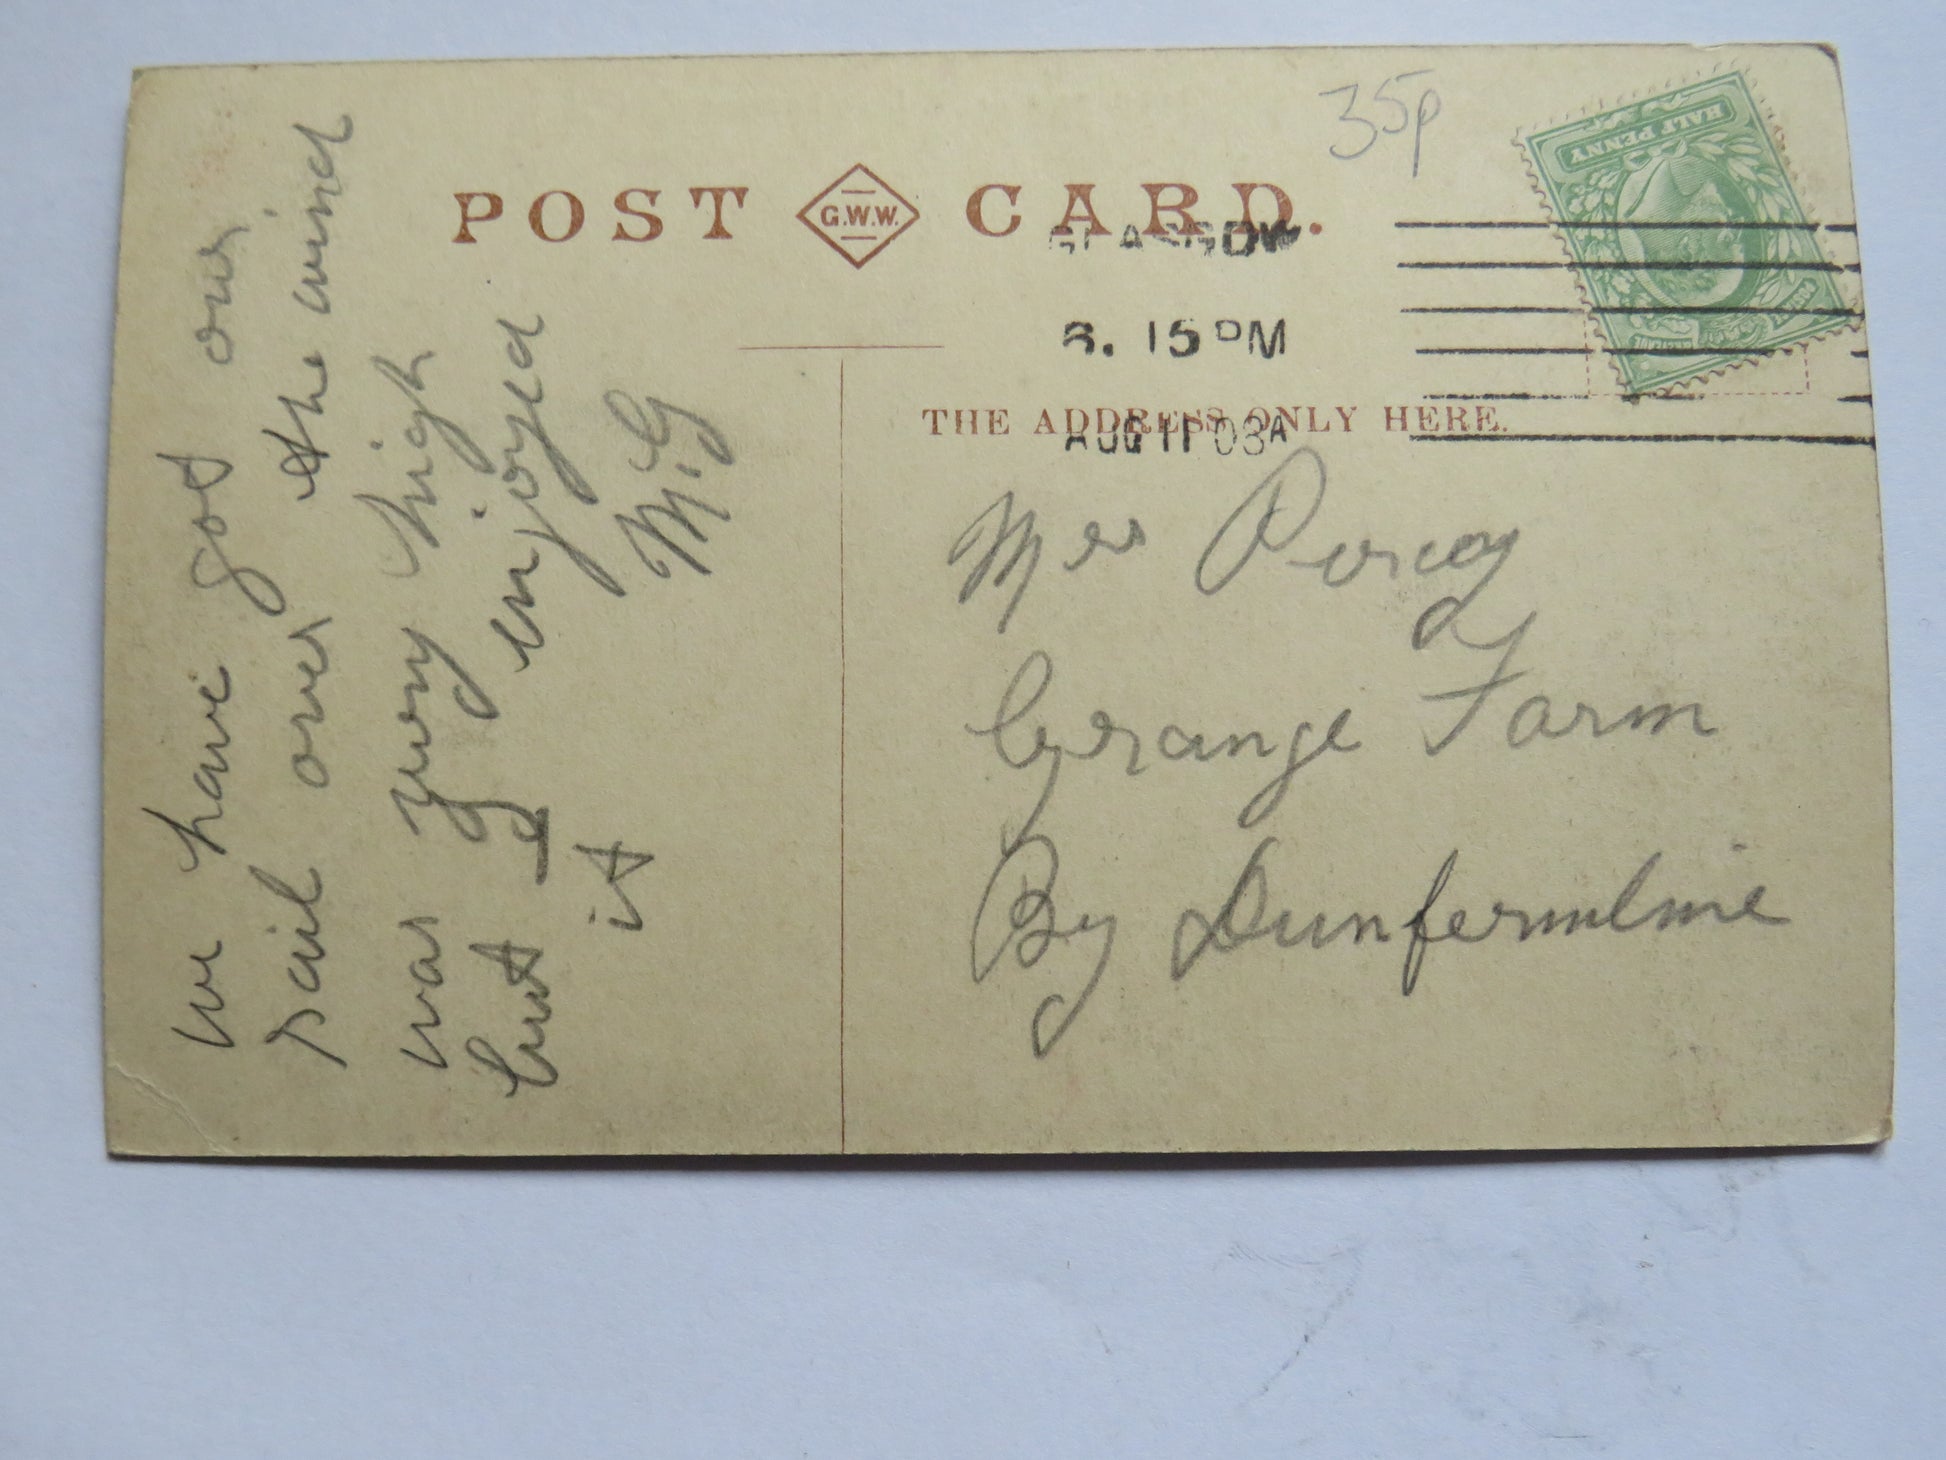 35p
POST G.W.W. CARD.
HALF PENNY
GLASGOW
8. 15 PM
THE ADDRESS ONLY HERE.
AUG 11 03A
we have got our
sail over the wind
was very high
but I enjoyed
it M.G
Mrs Percy
Grange Farm
By Dunfermline